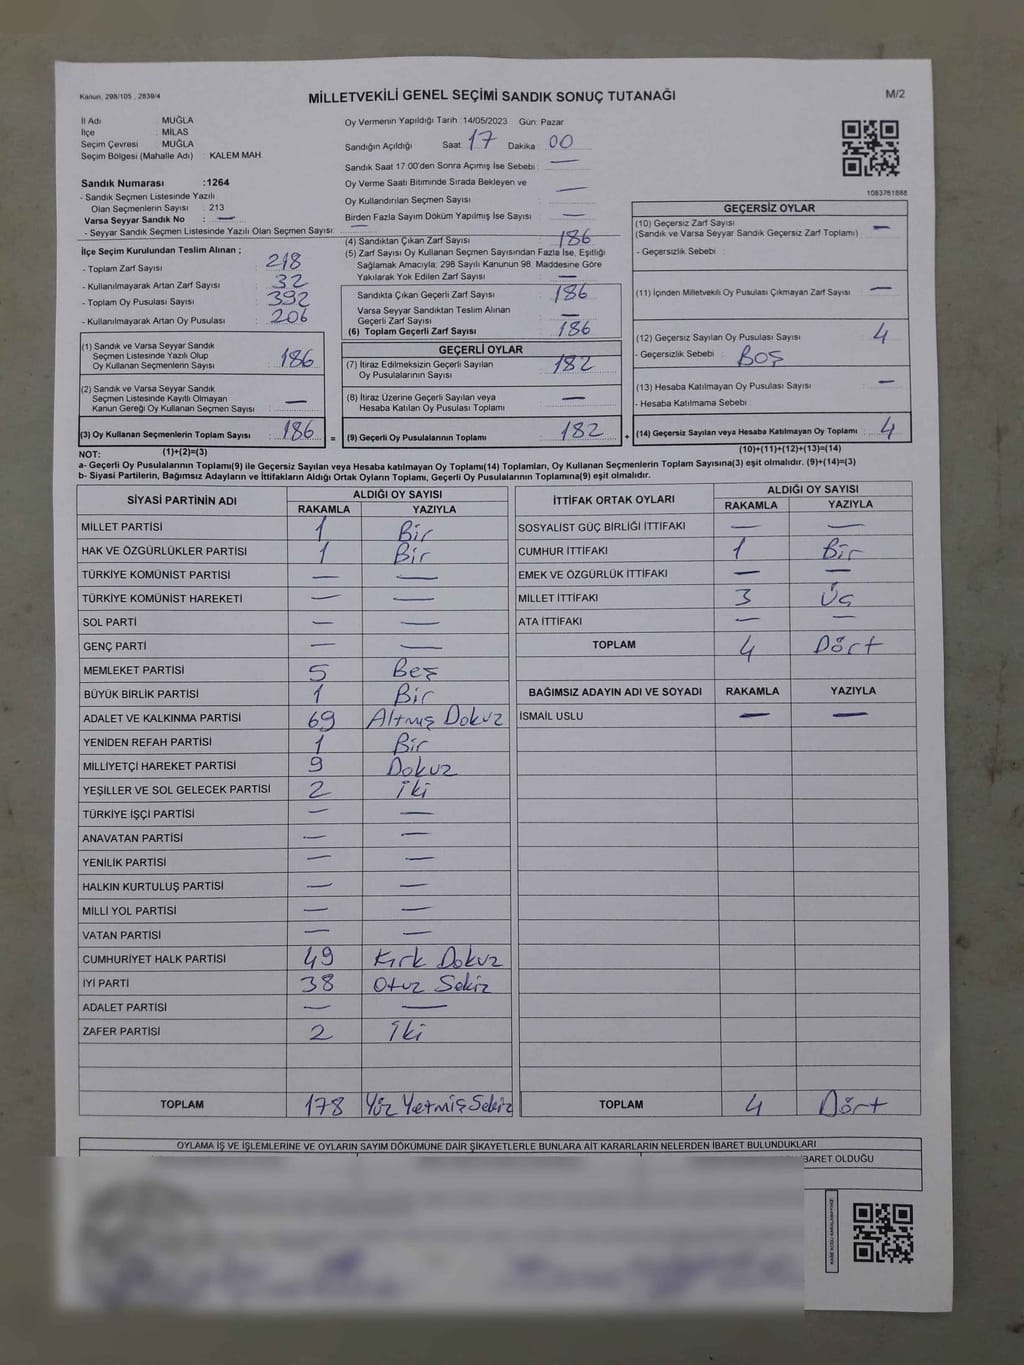 Kanun: 298/105 , 2839/4
MİLLETVEKİLİ GENEL SEÇİMİ SANDIK SONUÇ TUTANAĞI
M/2
İl Adı : MUĞLA
İlçe : MİLAS
Seçim Çevresi : MUĞLA
Seçim Bölgesi (Mahalle Adı) : KALEM MAH.
Sandık Numarası :1264
- Sandık Seçmen Listesinde Yazılı
Olan Seçmenlerin Sayısı : 213
Varsa Seyyar Sandık No : —
- Seyyar Sandık Seçmen Listesinde Yazılı Olan Seçmen Sayısı: —
İlçe Seçim Kurulundan Teslim Alınan ;
- Toplam Zarf Sayısı : 218
- Kullanılmayarak Artan Zarf Sayısı : 32
- Toplam Oy Pusulası Sayısı : 392
- Kullanılmayarak Artan Oy Pusulası : 206
(1) Sandık ve Varsa Seyyar Sandık
Seçmen Listesinde Yazılı Olup
Oy Kullanan Seçmenlerin Sayısı : 186
(2) Sandık ve Varsa Seyyar Sandık
Seçmen Listesinde Kayıtlı Olmayan
Kanun Gereği Oy Kullanan Seçmen Sayısı : —
(3) Oy Kullanan Seçmenlerin Toplam Sayısı : 186
Oy Vermenin Yapıldığı Tarih :14/05/2023 Gün: Pazar
Sandığın Açıldığı Saat: 17 Dakika: 00
Sandık Saat 17:00'den Sonra Açımış İse Sebebi : —
Oy Verme Saati Bitiminde Sırada Bekleyen ve
Oy Kullandırılan Seçmen Sayısı : —
Birden Fazla Sayım Döküm Yapılmış İse Sayısı : —
(4) Sandıktan Çıkan Zarf Sayısı : 186
(5) Zarf Sayısı Oy Kullanan Seçmen Sayısından Fazla İse, Eşitliği
Sağlamak Amacıyla; 298 Sayılı Kanunun 98. Maddesine Göre
Yakılarak Yok Edilen Zarf Sayısı : —
Sandıkta Çıkan Geçerli Zarf Sayısı : 186
Varsa Seyyar Sandıktan Teslim Alınan
Geçerli Zarf Sayısı : —
(6) Toplam Geçerli Zarf Sayısı : 186
GEÇERLİ OYLAR
(7) İtiraz Edilmeksizin Geçerli Sayılan
Oy Pusulalarının Sayısı : 182
(8) İtiraz Üzerine Geçerli Sayılan veya
Hesaba Katılan Oy Pusulası Toplamı : —
= (9) Geçerli Oy Pusulalarının Toplamı : 182 +
1083761888
GEÇERSİZ OYLAR
(10) Geçersiz Zarf Sayısı
(Sandık ve Varsa Seyyar Sandık Geçersiz Zarf Toplamı) : —
- Geçersizlik Sebebi :
(11) İçinden Milletvekili Oy Pusulası Çıkmayan Zarf Sayısı : —
(12) Geçersiz Sayılan Oy Pusulası Sayısı : 4
- Geçersizlik Sebebi : BOŞ
(13) Hesaba Katılmayan Oy Pusulası Sayısı : —
- Hesaba Katılmama Sebebi :
(14) Geçersiz Sayılan veya Hesaba Katılmayan Oy Toplamı : 4
NOT: (1)+(2)=(3) (10)+(11)+(12)+(13)=(14)
a- Geçerli Oy Pusulalarının Toplamı(9) ile Geçersiz Sayılan veya Hesaba katılmayan Oy Toplamı(14) Toplamları, Oy Kullanan Seçmenlerin Toplam Sayısına(3) eşit olmalıdır. (9)+(14)=(3)
b- Siyasi Partilerin, Bağımsız Adayların ve İttifakların Aldığı Ortak Oyların Toplamı, Geçerli Oy Pusulalarının Toplamına(9) eşit olmalıdır.
SİYASİ PARTİNİN ADI ALDIĞI OY SAYISI
RAKAMLA YAZIYLA
MİLLET PARTİSİ 1 Bir
HAK VE ÖZGÜRLÜKLER PARTİSİ 1 Bir
TÜRKİYE KOMÜNİST PARTİSİ — —
TÜRKİYE KOMÜNİST HAREKETİ — —
SOL PARTİ — —
GENÇ PARTİ — —
MEMLEKET PARTİSİ 5 Beş
BÜYÜK BİRLİK PARTİSİ 1 Bir
ADALET VE KALKINMA PARTİSİ 69 Altmış Dokuz
YENİDEN REFAH PARTİSİ 1 Bir
MİLLİYETÇİ HAREKET PARTİSİ 9 Dokuz
YEŞİLLER VE SOL GELECEK PARTİSİ 2 İki
TÜRKİYE İŞÇİ PARTİSİ — —
ANAVATAN PARTİSİ — —
YENİLİK PARTİSİ — —
HALKIN KURTULUŞ PARTİSİ — —
MİLLİ YOL PARTİSİ — —
VATAN PARTİSİ — —
CUMHURİYET HALK PARTİSİ 49 Kırk Dokuz
İYİ PARTİ 38 Otuz Sekiz
ADALET PARTİSİ — —
ZAFER PARTİSİ 2 İki
TOPLAM 178 Yüz Yetmiş Sekiz
İTTİFAK ORTAK OYLARI ALDIĞI OY SAYISI
RAKAMLA YAZIYLA
SOSYALİST GÜÇ BİRLİĞİ İTTİFAKI — —
CUMHUR İTTİFAKI 1 Bir
EMEK VE ÖZGÜRLÜK İTTİFAKI — —
MİLLET İTTİFAKI 3 Üç
ATA İTTİFAKI — —
TOPLAM 4 Dört
BAĞIMSIZ ADAYIN ADI VE SOYADI RAKAMLA YAZIYLA
İSMAİL USLU — —
TOPLAM 4 Dört
OYLAMA İŞ VE İŞLEMLERİNE VE OYLARIN SAYIM DÖKÜMÜNE DAİR ŞİKAYETLERLE BUNLARA AİT KARARLARIN NELERDEN İBARET BULUNDUKLARI
İBARET OLDUĞU